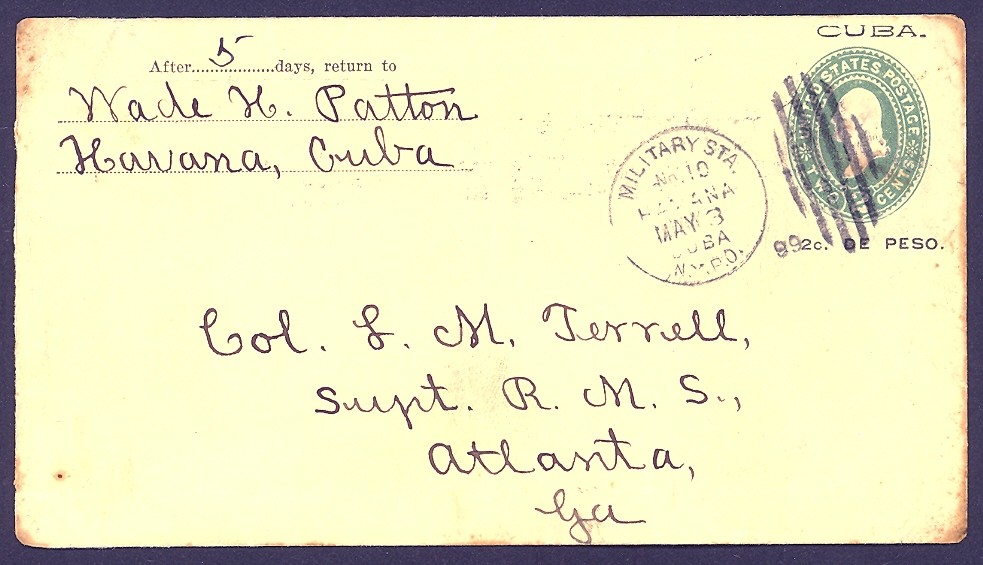 CUBA.
After 5 days, return to
Wade H. Patton
Havana, Cuba
UNITED STATES POSTAGE
TWO CENTS
2c. DE PESO.
MILITARY STA.
No. 10
HAVANA
MAY 3
99
CUBA
N.Y.P.O.
Col. L. M. Terrell,
Supt. R. M. S.,
Atlanta,
Ga